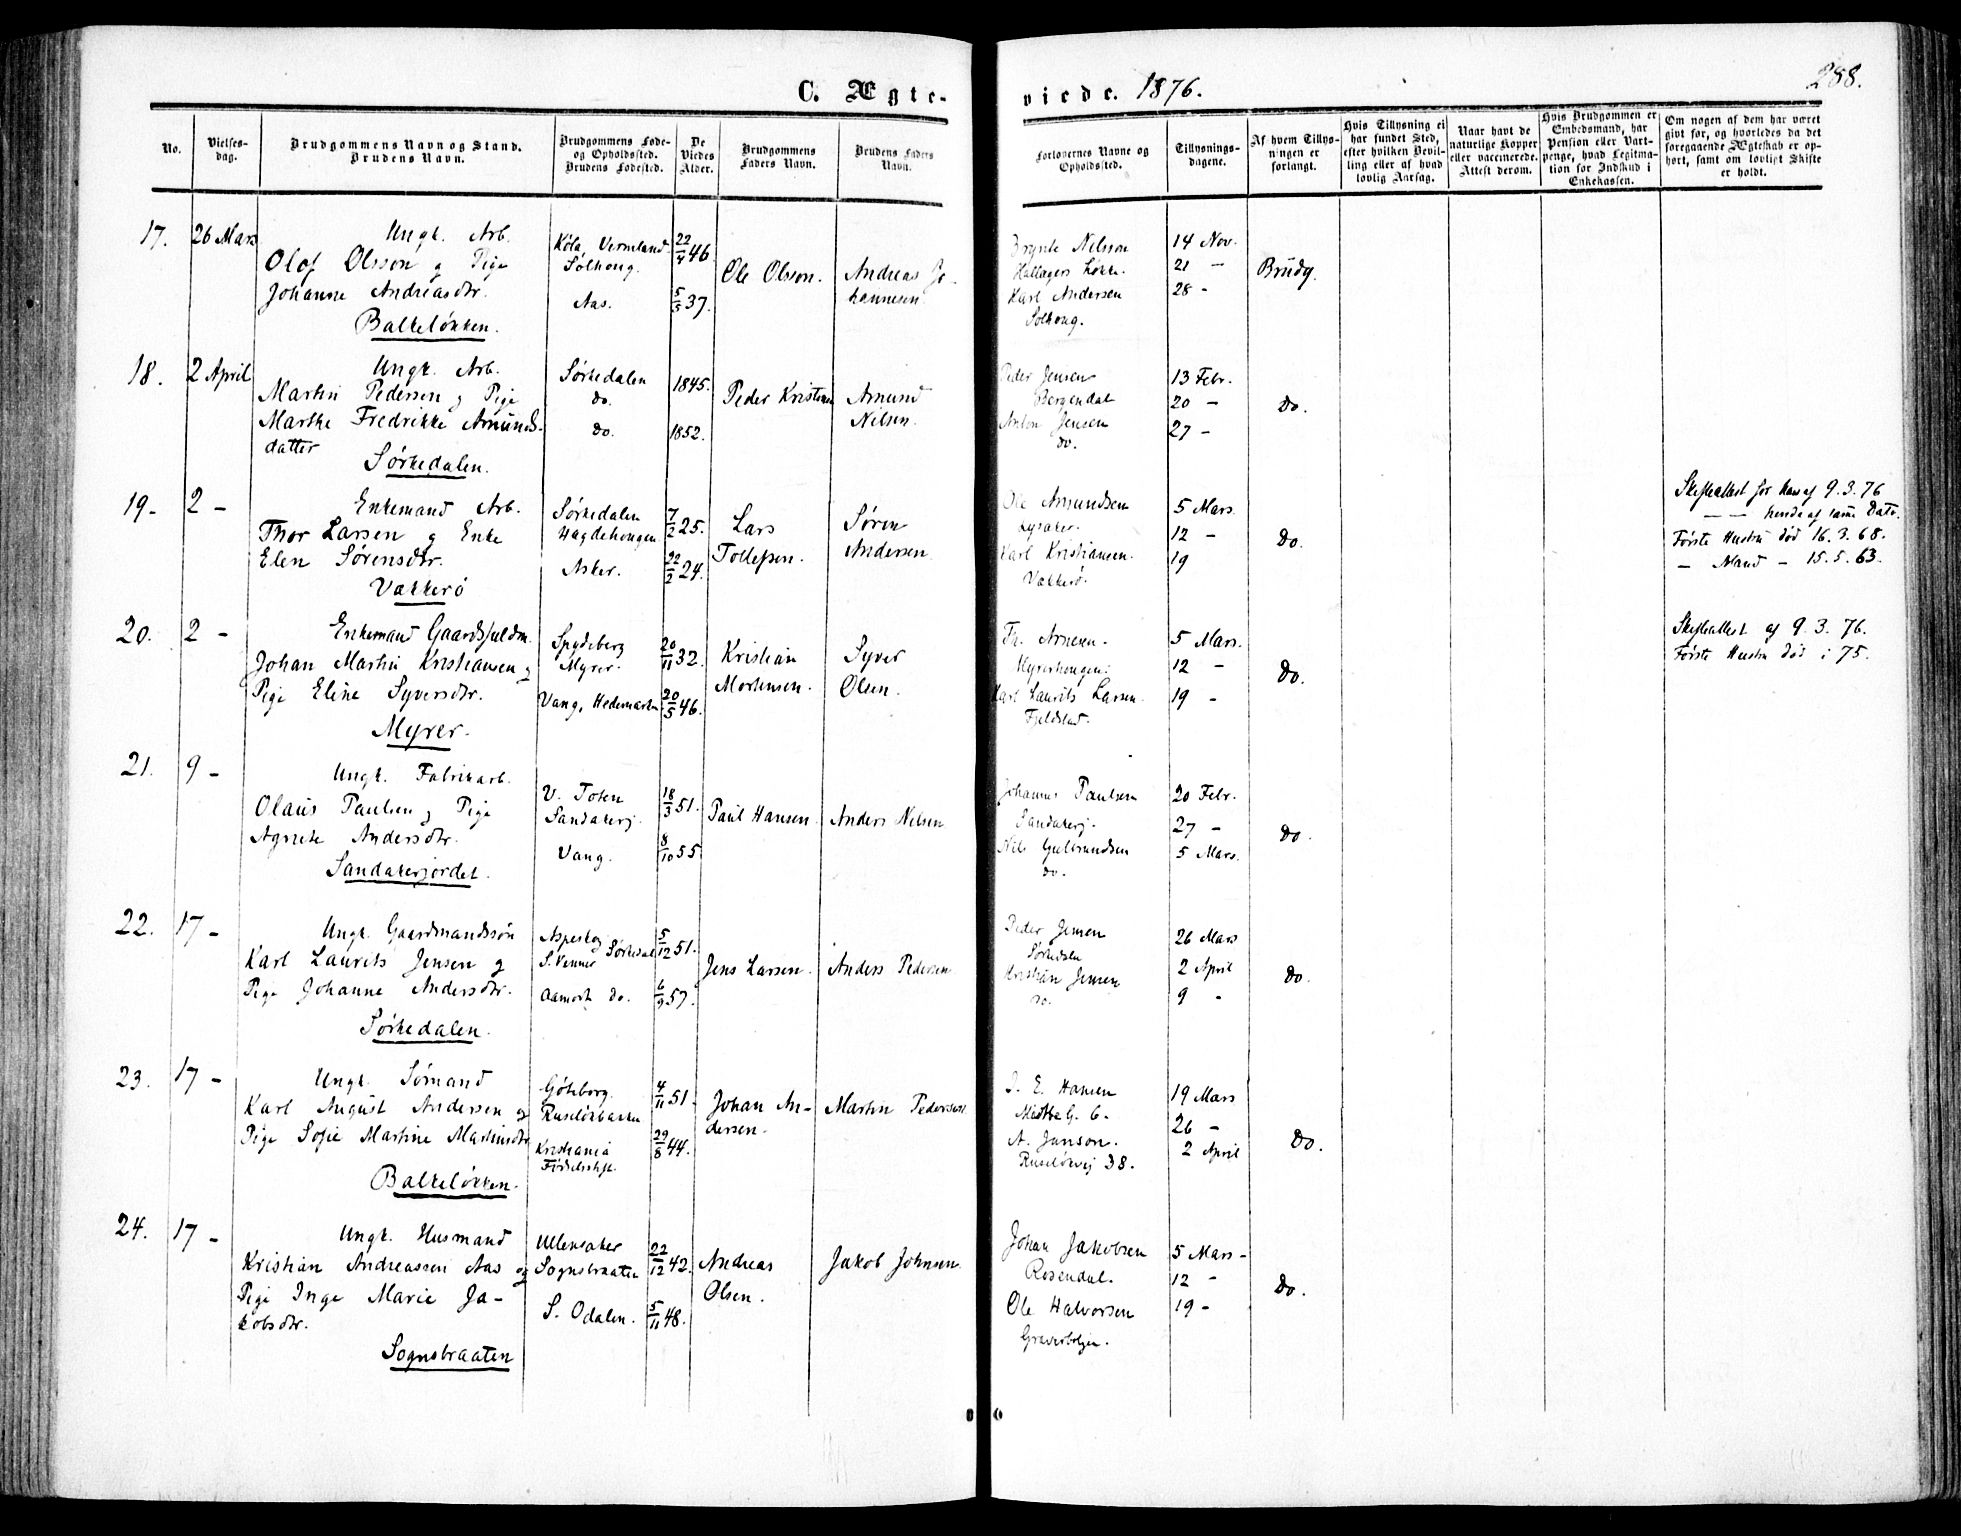 C. Ægte-
viede. 1876.
288.
No.
Vielses-
dag.
Brudgommens Navn og Stand.
Brudens Navn.
Brudgommens Føde-
og Opholdssted.
Brudens Fødested.
De
Viedes
Alder.
Brudgommens
Faders Navn.
Brudens Faders
Navn.
Forlovernes Navne og
Opholdssted.
Tillysnings-
dagene.
Af hvem Tillys-
ningen er
forlangt.
Hvis Tillysning ei
har fundet Sted,
efter hvilken Bevil-
ling eller af hvad
lovlig Aarsag.
Naar havt de
naturlige Kopper
eller vaccinerede.
Attest derom.
Hvis Brudgommen er
Embedsmand, har
Pension eller Vart-
penge, hvad Legitima-
tion for Indskud i
Enkekassen.
Om nogen af dem har været
givt før, og hvorledes da det
foregaaende Ægteskab er op-
hørt, samt om lovligt Skifte
er holdt.
17. 26 Mars
Ungk. Arb.
Olof Olsson og Pige
Johanne Andreasdtr.
Balkeløkken.
Køla, Vermland.
Solhoug.
Aas.
22/4 46.
5/3 37.
Ole Olsson.
Andreas Jo-
hannesen
Brynte Nilsson
Hallagers Løkke.
Karl Andersen
Solhoug.
14 Nov.
21 -
28 -
Brudg.
18. 2 April
Ungk. Arb.
Martin Pedersen og Pige
Marthe Fredrikke Amunds-
datter
Sørkedalen.
Sørkedalen
do.
do.
1845.
1852.
Peder Kristensen
Amund
Nilsen.
Peder Jensen
Bergendal
Anton Jensen
do.
13 Febr.
20 -
27 -
do.
19- 2 -
Enkemand Arb.
Thor Larsen og Enke
Elen Sørensdtr.
Vækkerø
Sørkedalen
Hagdehougen
Asker.
7/2 25.
22/2 24.
Lars
Tollefsen.
Søren
Andersen
Ole Amundsen
Lysaker.
Karl Kristiansen.
Vækkerø.
5 Mars.
12 -
19
do.
Skifteattest for ham af 9.3.76
- - hende af samme Dato.
Første Hustru død 16.3.68.
- Mand - 15.5.63.
20. 2 -
Enkemand Gaardsfuldm.
Johan Martin Kristiansen og
Pige Eline Syversdtr.
Myrer.
Spydeberg
Myrer.
Vang, Hedemarken
20/11 32.
20/5 46.
Kristian
Mortensen.
Syver
Olsen.
Fr. Arnesen.
Myrerhougen.
Karl Laurits Larsen.
Fjeldstad.
5 Mars.
12 -
19 -
do.
Skifteattest af 9.3.76.
Første Hustru død i 75.
21. 9 -
Ungk. Fabrikarb.
Olaus Paulsen og Pige
Agnete Andersdtr.
Sandakerjordet.
V. Toten
Sandakerj.
Vang.
18/3 51.
8/10 55
Paul Hansen.
Anders Nilsen
Johannes Paulsen
Sandakerj.
Nils Gulbrandsen
do.
20 Febr.
27 -
5 Mars.
do.
22. 17 -
Ungk. Gaardmandssøn
Karl Laurits Jensen og
Pige Johanne Andersdtr.
Sørkedalen.
Aspeskog
S. Venner Sørkedal
Aamork do.
5/12 51.
6/9 57.
Jens Larsen.
Anders Pedersen
Peder Jensen
Sørkedalen
Kristian Jensen
do.
26 Mars
2 April
9 -
do.
23. 17 -
Ungk. Sømand
Karl August Andersen og
Pige Sofie Martine Martinsdtr.
Balkeløkken.
Gøteborg.
Ruseløkbakken
Kristiania
Fødselsstift.
4/11 51-
29/8 44.
Johan An-
dersen.
Martin Pedersen
J. E. Hansen
G. 6.
A. Janson.
Ruseløkvej 38.
19 Mars
26 -
2 April
do.
24. 17 -
Ungk. Husmand
Kristian Andreassen Aas og
Pige Inge Marie Ja-
kobsdtr.
Sognsbraaten
Ullensaker
Sognsbraaten
S. Odalen.
22/12 42.
5/11 48.
Andreas
Olsen.
Jakob Johnsen.
Johan Jakobsen
Rosendal.
Ole Halvorsen
5 Mars-
12 -
19 -
do.